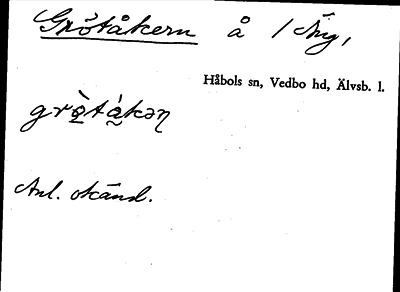 Grötåkern å / Äng,
Håbols sn, Vedbo hd, Älvsb. l.
grö̀tákəɳ
Anl. okänd.